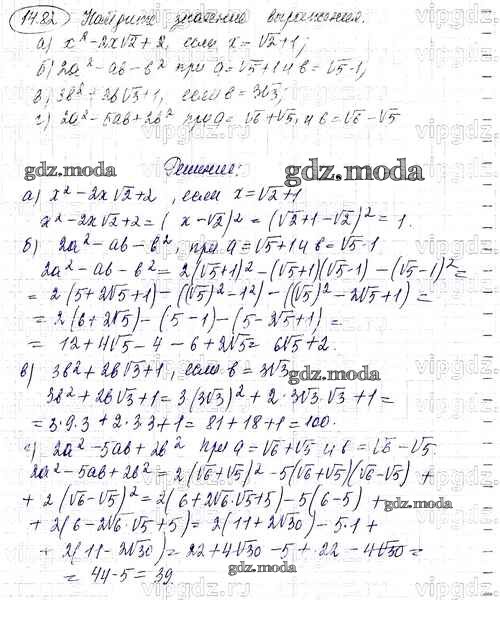 14.82) Найдите значение выражения.
а) x² - 2x√2 + 2, если x = √2 + 1;
б) 2a² - ab - b² при a = √5 + 1 и b = √5 - 1;
в) 3b² + 2b√3 + 1, если b = 3√3;
г) 2a² - 5ab + 2b² при a = √6 + √5, и b = √6 - √5
gdz.moda gdz.moda
Решение:
а) x² - 2x√2 + 2, если x = √2 + 1
x² - 2x√2 + 2 = (x - √2)² = (√2 + 1 - √2)² = 1.
б) 2a² - ab - b², при a = √5 + 1 и b = √5 - 1
2a² - ab - b² = 2(√5+1)² - (√5+1)(√5-1) - (√5-1)² =
= 2(5 + 2√5 + 1) - ((√5)² - 1²) - ((√5)² - 2√5 + 1) =
= 2(6 + 2√5) - (5 - 1) - (5 - 2√5 + 1) =
= 12 + 4√5 - 4 - 6 + 2√5 = 6√5 + 2.
в) 3b² + 2b√3 + 1, если b = 3√3
gdz.moda
3b² + 2b√3 + 1 = 3(3√3)² + 2·3√3·√3 + 1 =
= 3·9·3 + 2·3·3 + 1 = 81 + 18 + 1 = 100.
г) 2a² - 5ab + 2b² при a = √6 + √5 и b = √6 - √5.
gdz.moda
2a² - 5ab + 2b² = 2(√6+√5)² - 5(√6+√5)(√6-√5) +
+ 2(√6-√5)² = 2(6 + 2√6·√5 + 5) - 5(6-5) +
gdz.moda
+ 2(6 - 2√6·√5 + 5) = 2(11 + 2√30) - 5·1 +
+ 2(11 - 2√30) = 22 + 4√30 - 5 + 22 - 4√30 =
= 44 - 5 = 39.
gdz.moda